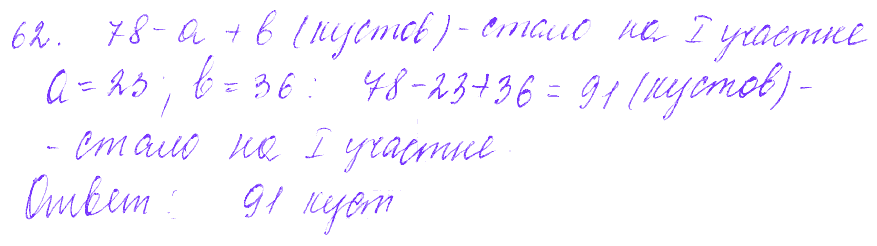 62. 78 - a + b (кустов) - стало на I участке
a = 23; b = 36: 78 - 23 + 36 = 91 (кустов) -
- стало на I участке.
Ответ: 91 куст